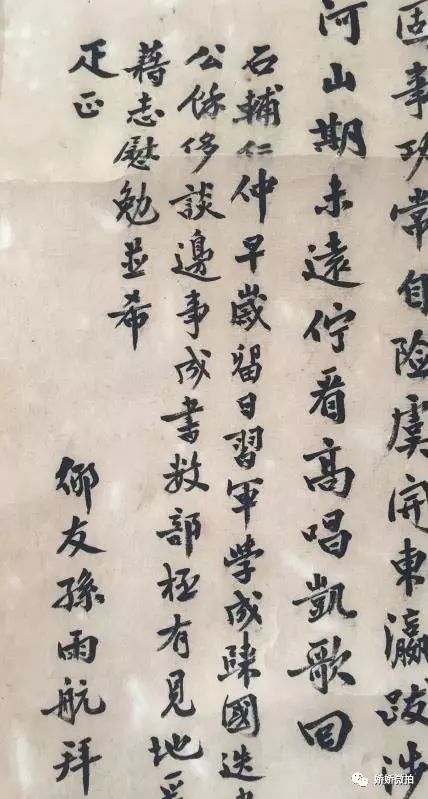 固事功常自险虞開東瀛跋涉
河山期未遠佇看高唱凱歌回
石輔仁仲早歲留日習軍學成歸國迭
公係侈談邊事成書数部極有見地
藉志慰勉並希
疋正
鄉友孫雨航拜
娇娇微拍